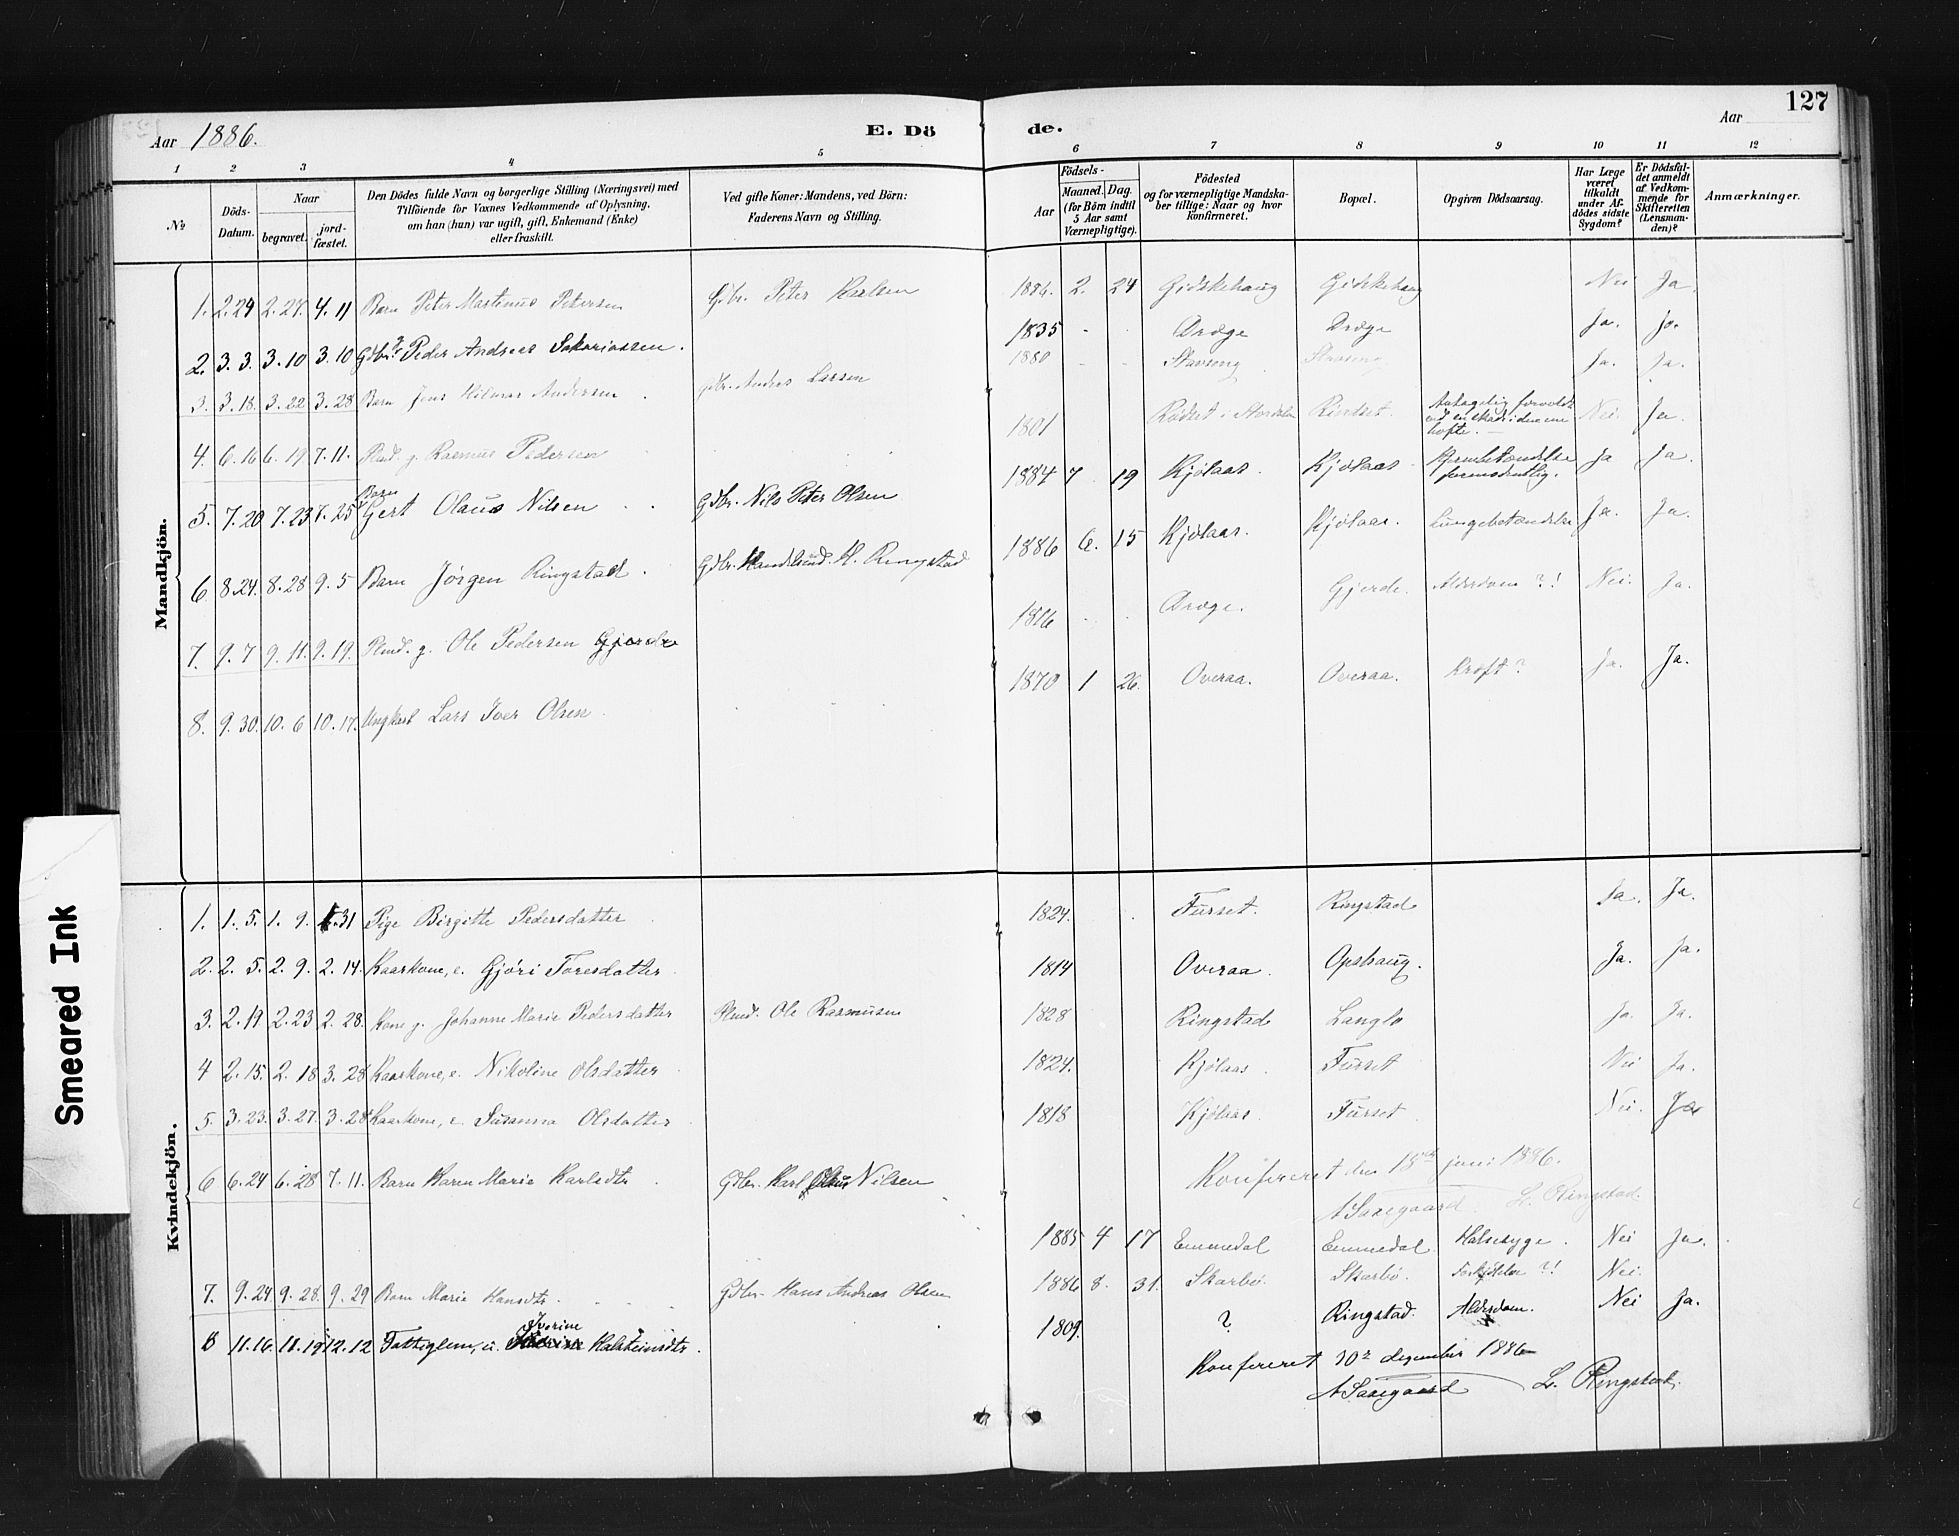 Aar 1886. E. Dö de. Aar 127
1 2 3 4 5 6 7 8 9 10 11 12
№ Döds-Datum. Naar begravet. jord-fæstet. Den Dödes fulde Navn og borgerlige Stilling (Næringsvei) med Tilföiende for Voxnes Vedkommende af Oplysning, om han (hun) var ugift, gift, Enkemand (Enke) eller fraskilt. Ved gifte Koner: Mandens, ved Börn: Faderens Navn og Stilling. Födsels- Aar Maaned. Dag. (for Börn indtil 5 Aar samt Værnepligtige). Födested og for værnepligtige Mandskaber tillige: Naar og hvor konfirmeret. Bopæl. Opgiven Dödsaarsag. Har Læge været tilkaldt under Afdödes sidste Sygdom? Er Dödsfaldet anmeldt af Vedkommende for Skifteretten (Lensmanden)? Anmærkninger.
Mandkjön.
1. 2.24 2.27. 4.11 Barn Peter Martinus Petersen Gdbr. Peter Karlsen 1886. 2. 24 Gidskehaug Gidskehaug Nei Ja
2. 3.3. 3.10 3.10 Gdbr. Peder Andreas Sakariassen. 1835 - - Dræge Dræge Ja. Ja.
3. 3.18. 3.22 3.28 Barn Jens Hilmar Andersen Gdbr. Anders Larsen 1880 - - Stavseng Stavseng Ja. Ja.
4. 6.16 6.19 7.11. g. Rasmus Pedersen 1801 i Rindset. hofte. Nei. Ja.
5. 7.20 7.23 7.25 Barn Gert Olaus Nilsen Gdbr. Nils Peter Olsen 1884 7 19 Kjølaas. Kjølaas formodentlig. Ja Ja.
6. 8.24. 8.28 9.5 Barn Jørgen Ringstad. Gdbr. H. Ringstad 1886 6. 15 Kjølaas. Kjølaas. Lungebetændelse Ja. Ja.
7. 9.7 9.11. 9.19. g. Ole Pedersen Gjerde 1816 - - Dræge. Gjerde. Alderdom ?! Nei. Ja.
8. 9.30. 10.6 10.17. Ungkarl Lars Iver Olsen 1870 1 26. Overaa. Overaa. Kræft? Ja. Ja.
Kvindekjön.
1. 1.5. 1.9. 1.31 Pige Birgitte Pedersdatter 1824. Furset. Ringstad Ja. Ja.
2. 2.5. 2.9. 2.14. Kaarkone, e. Gjøri Toresdatter 1814 Overaa. Opshaug. Ja. Ja.
3. 2.19 2.23 2.28. Kone g. Johanne Marie Pedersdatter Ole Rasmusen 1828 Ringstad Langlo Ja. Ja.
4 2.15. 2.18 3.28 Kaarkone, e. Nikoline Olsdatter 1824. Kjølaas Furset Nei Ja.
5. 3.23. 3.27. 3.28 Kaarkone, e. Susanna Olsdatter 1818 Kjølaas Furset Nei. Ja
Konfereret den 18de juni 1886.
A Saxegaard L. Ringstad.
6 6.24 6.28 7.11. Barn Karen Marie Karlsdtr Gdbr. Karl Nilsen 1885 4 17 Emmedal Emmedal Halsesyge. Nei Ja.
7. 9.24 9.28. 9.29 Barn Marie Hansdtr. Gdbr. Hans Andreas Olsen 1886 8. 31. Skarbø. Skarbø. Forkjølelse ?! Nei.
8 11.16. 11.19 12.12 Fattiglem, u. Iverine Halsteinsdtr. 1809. ? Ringstad. Alderdom. Nei Ja.
Konfereret 10de desember 1886
A Saxegaard L. Ringstad.
Smeared Ink